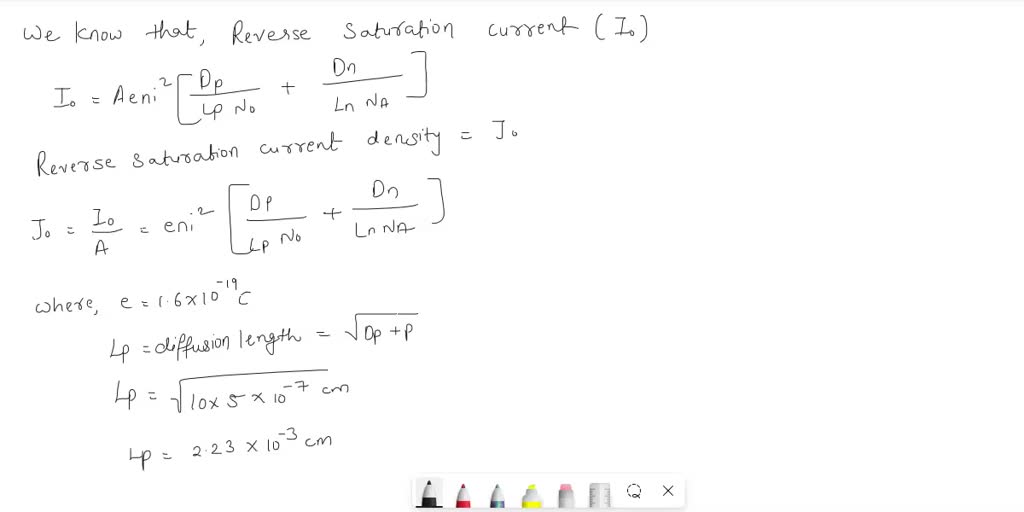 We know that, Reverse saturation current (I₀)
I₀ = Aeni² [ Dp / Lp N₀ + Dn / Ln NA ]
Reverse saturation current density = J₀
J₀ = I₀ / A = eni² [ Dp / Lp N₀ + Dn / Ln NA ]
where, e = 1.6×10⁻¹⁹ C
Lp = diffusion length = √(Dp + p)
Lp = √(10 × 5 × 10⁻⁷) cm
Lp = 2.23 × 10⁻³ cm